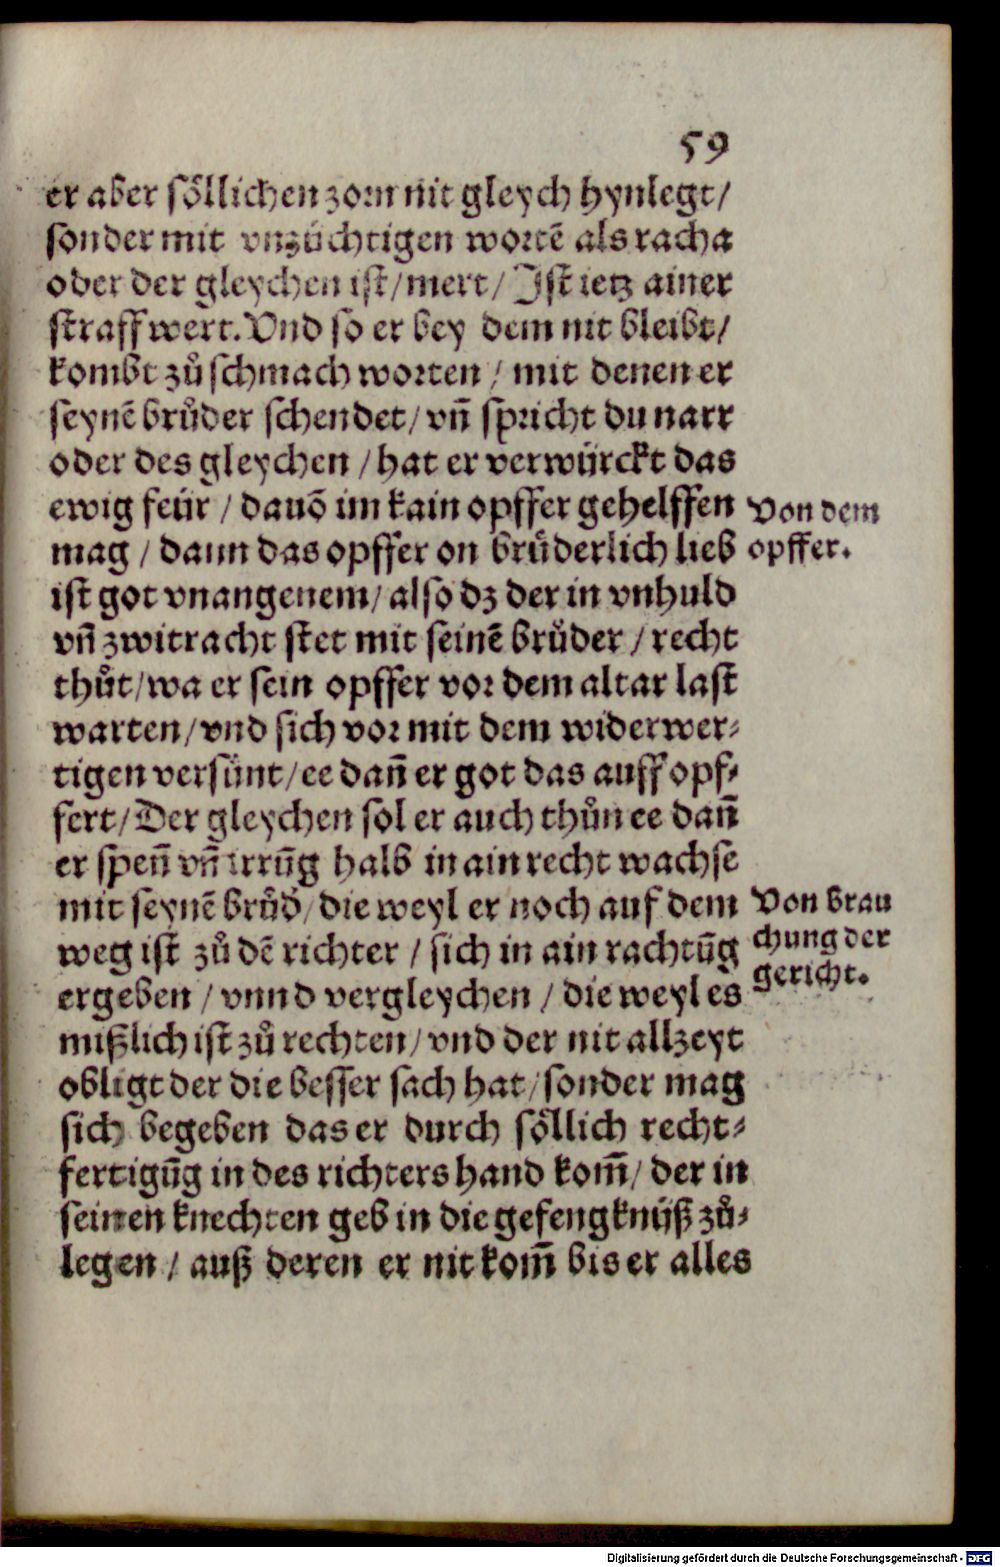 59
er aber soͤllichen zorn nit gleych hynlegt/
sonder mit vnzüchtigen wortẽ als racha
oder der gleychen ist/mert/Ist ietz ainer
straff wert. Vnd so er bey dem nit bleibt/
kombt zů schmach worten/mit denen er
seynẽ brůder schendet/vñ spricht du narr
oder des gleychen/hat er verwürckt das
ewig feür/dauõ im kain opffer gehelffen
Von dem
mag/dann das opffer on brüderlich lieb
opffer.
ist got vnangenem/also dz der in vnhuld
vñ zwitracht stet mit seinẽ brůder/recht
thůt/wa er sein opffer vor dem altar last
warten/vnd sich vor mit dem widerwer⸗
tigen versünt/ee dañ er got das auff opf⸗
fert/Der gleychen sol er auch thůn ee dañ
er speñ vñ irrũg halb in ain recht wachse
mit seynẽ brůd̃/die weyl er noch auf dem
Von brau
weg ist zů dẽ richter/sich in ain rachtũg
chung der
ergeben/vnnd vergleychen/die weyl es
gericht.
mißlich ist zů rechten/vnd der nit allzeyt
obligt der die besser sach hat/sonder mag
sich begeben das er durch soͤllich recht⸗
fertigũg in des richters hand kom̃/der in
seinen knechten geb in die gefengknüß zů⸗
legen/auß deren er nit kom̃ bis er alles
Digitalisierung gefördert durch die Deutsche Forschungsgemeinschaft - DFG